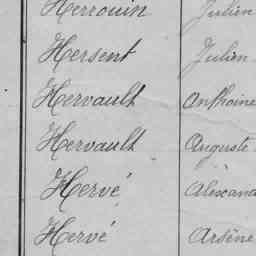 Herrouin Julien
Hersent Julien
Hervault Anthoine
Hervault Auguste
Hervé
Hervé Arsène